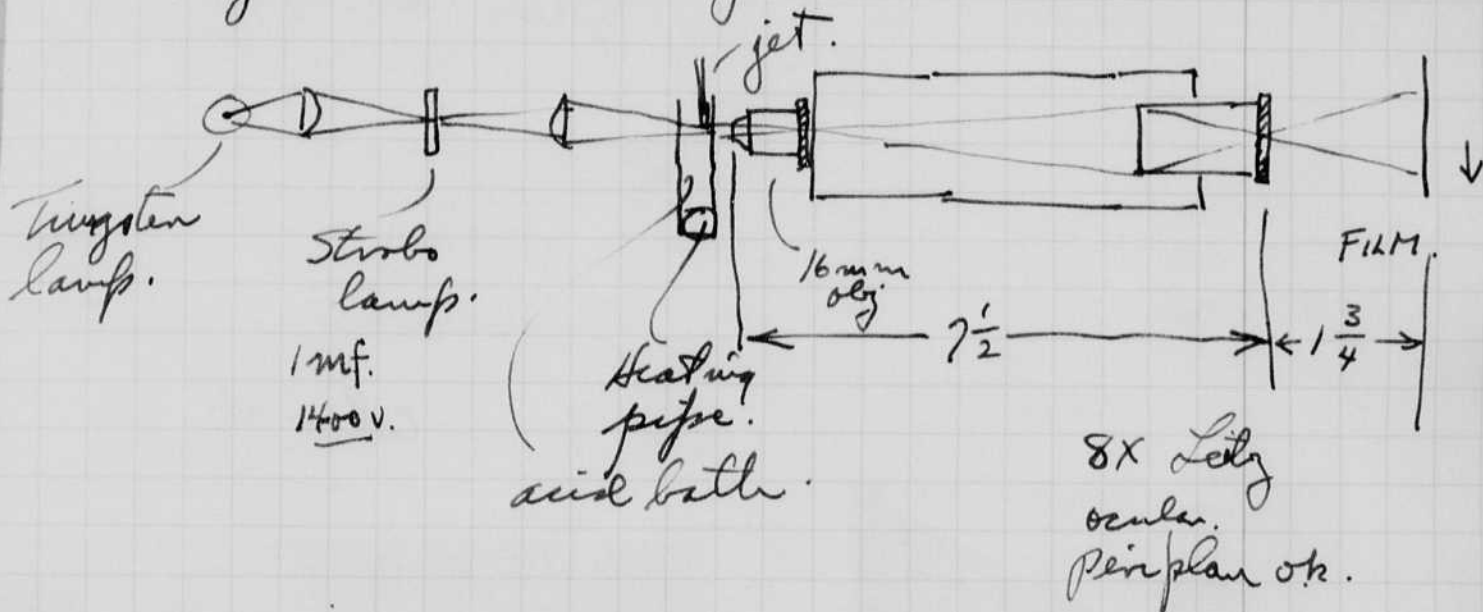 jet.
Tungsten
lamp.
Strobo
lamp.
1 mf.
1400 v.
Heating
pipe.
acid bath.
16 mm
obj
7 1/2
1 3/4
FILM.
8X Leitz
ocular.
Periplan ok.